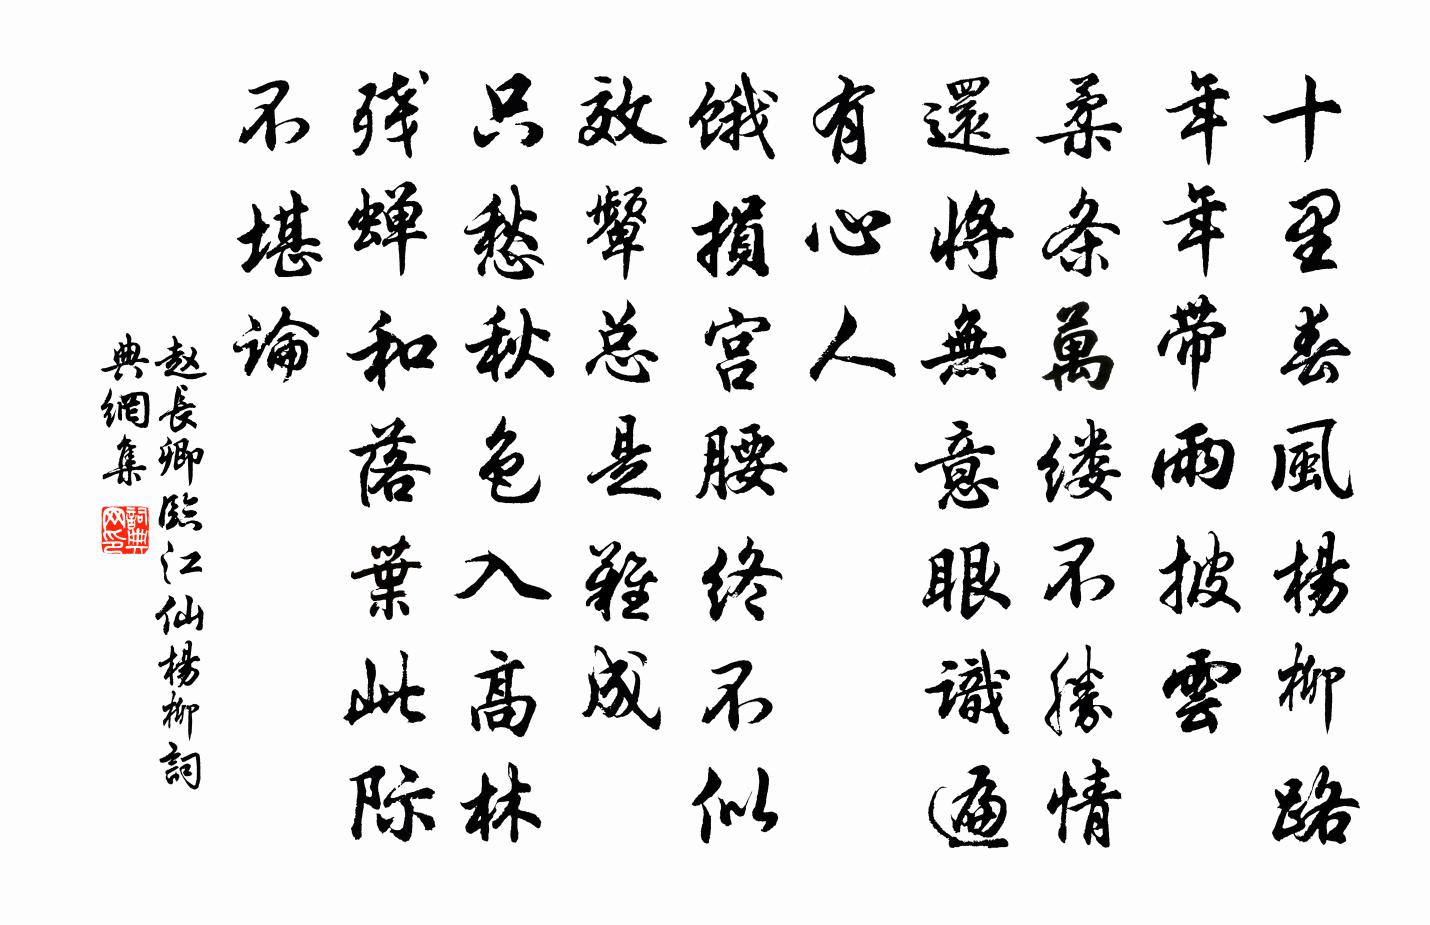 十里春風楊柳路
年年帶雨披雲
柔条萬缕不勝情
還將無意眼識遍
有心人
饿損宫腰终不似
效顰总是難成
只愁秋色入高林
残蝉和落葉此际
不堪論
赵長卿臨江仙楊柳詞
典網集
詞典网印